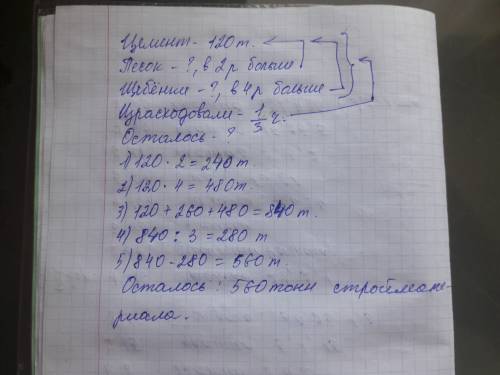 Цемент - 120 т.
Песок - ?, в 2 р больше
Щебёнка - ?, в 4 р больше
Израсходовали - 1/3 ч.
Осталось - ?
1) 120 · 2 = 240 т.
2) 120 · 4 = 480 т.
3) 120 + 260 + 480 = 840 т.
4) 840 : 3 = 280 т
5) 840 - 280 = 560 т.
Осталось : 560 тонн строймате-
риала.